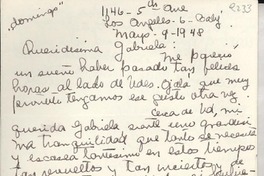 2233
"domingo"
1146-5th Ave
Los Angeles-6-Caly
Mayo-9-1948
Queridísima Gabriela: me pareció
un sueño haber pasado tan felices
horas al lado de Udes. Ojalá que muy
pronto tengamos ese gusto otra vez.
Cerca de Vd, mi
querida Gabriela siento una grandísi
ma tranquilidad que tanto se necesita
y escasea tantísimo en estos tiempos
tan revueltos y tan inciertos de